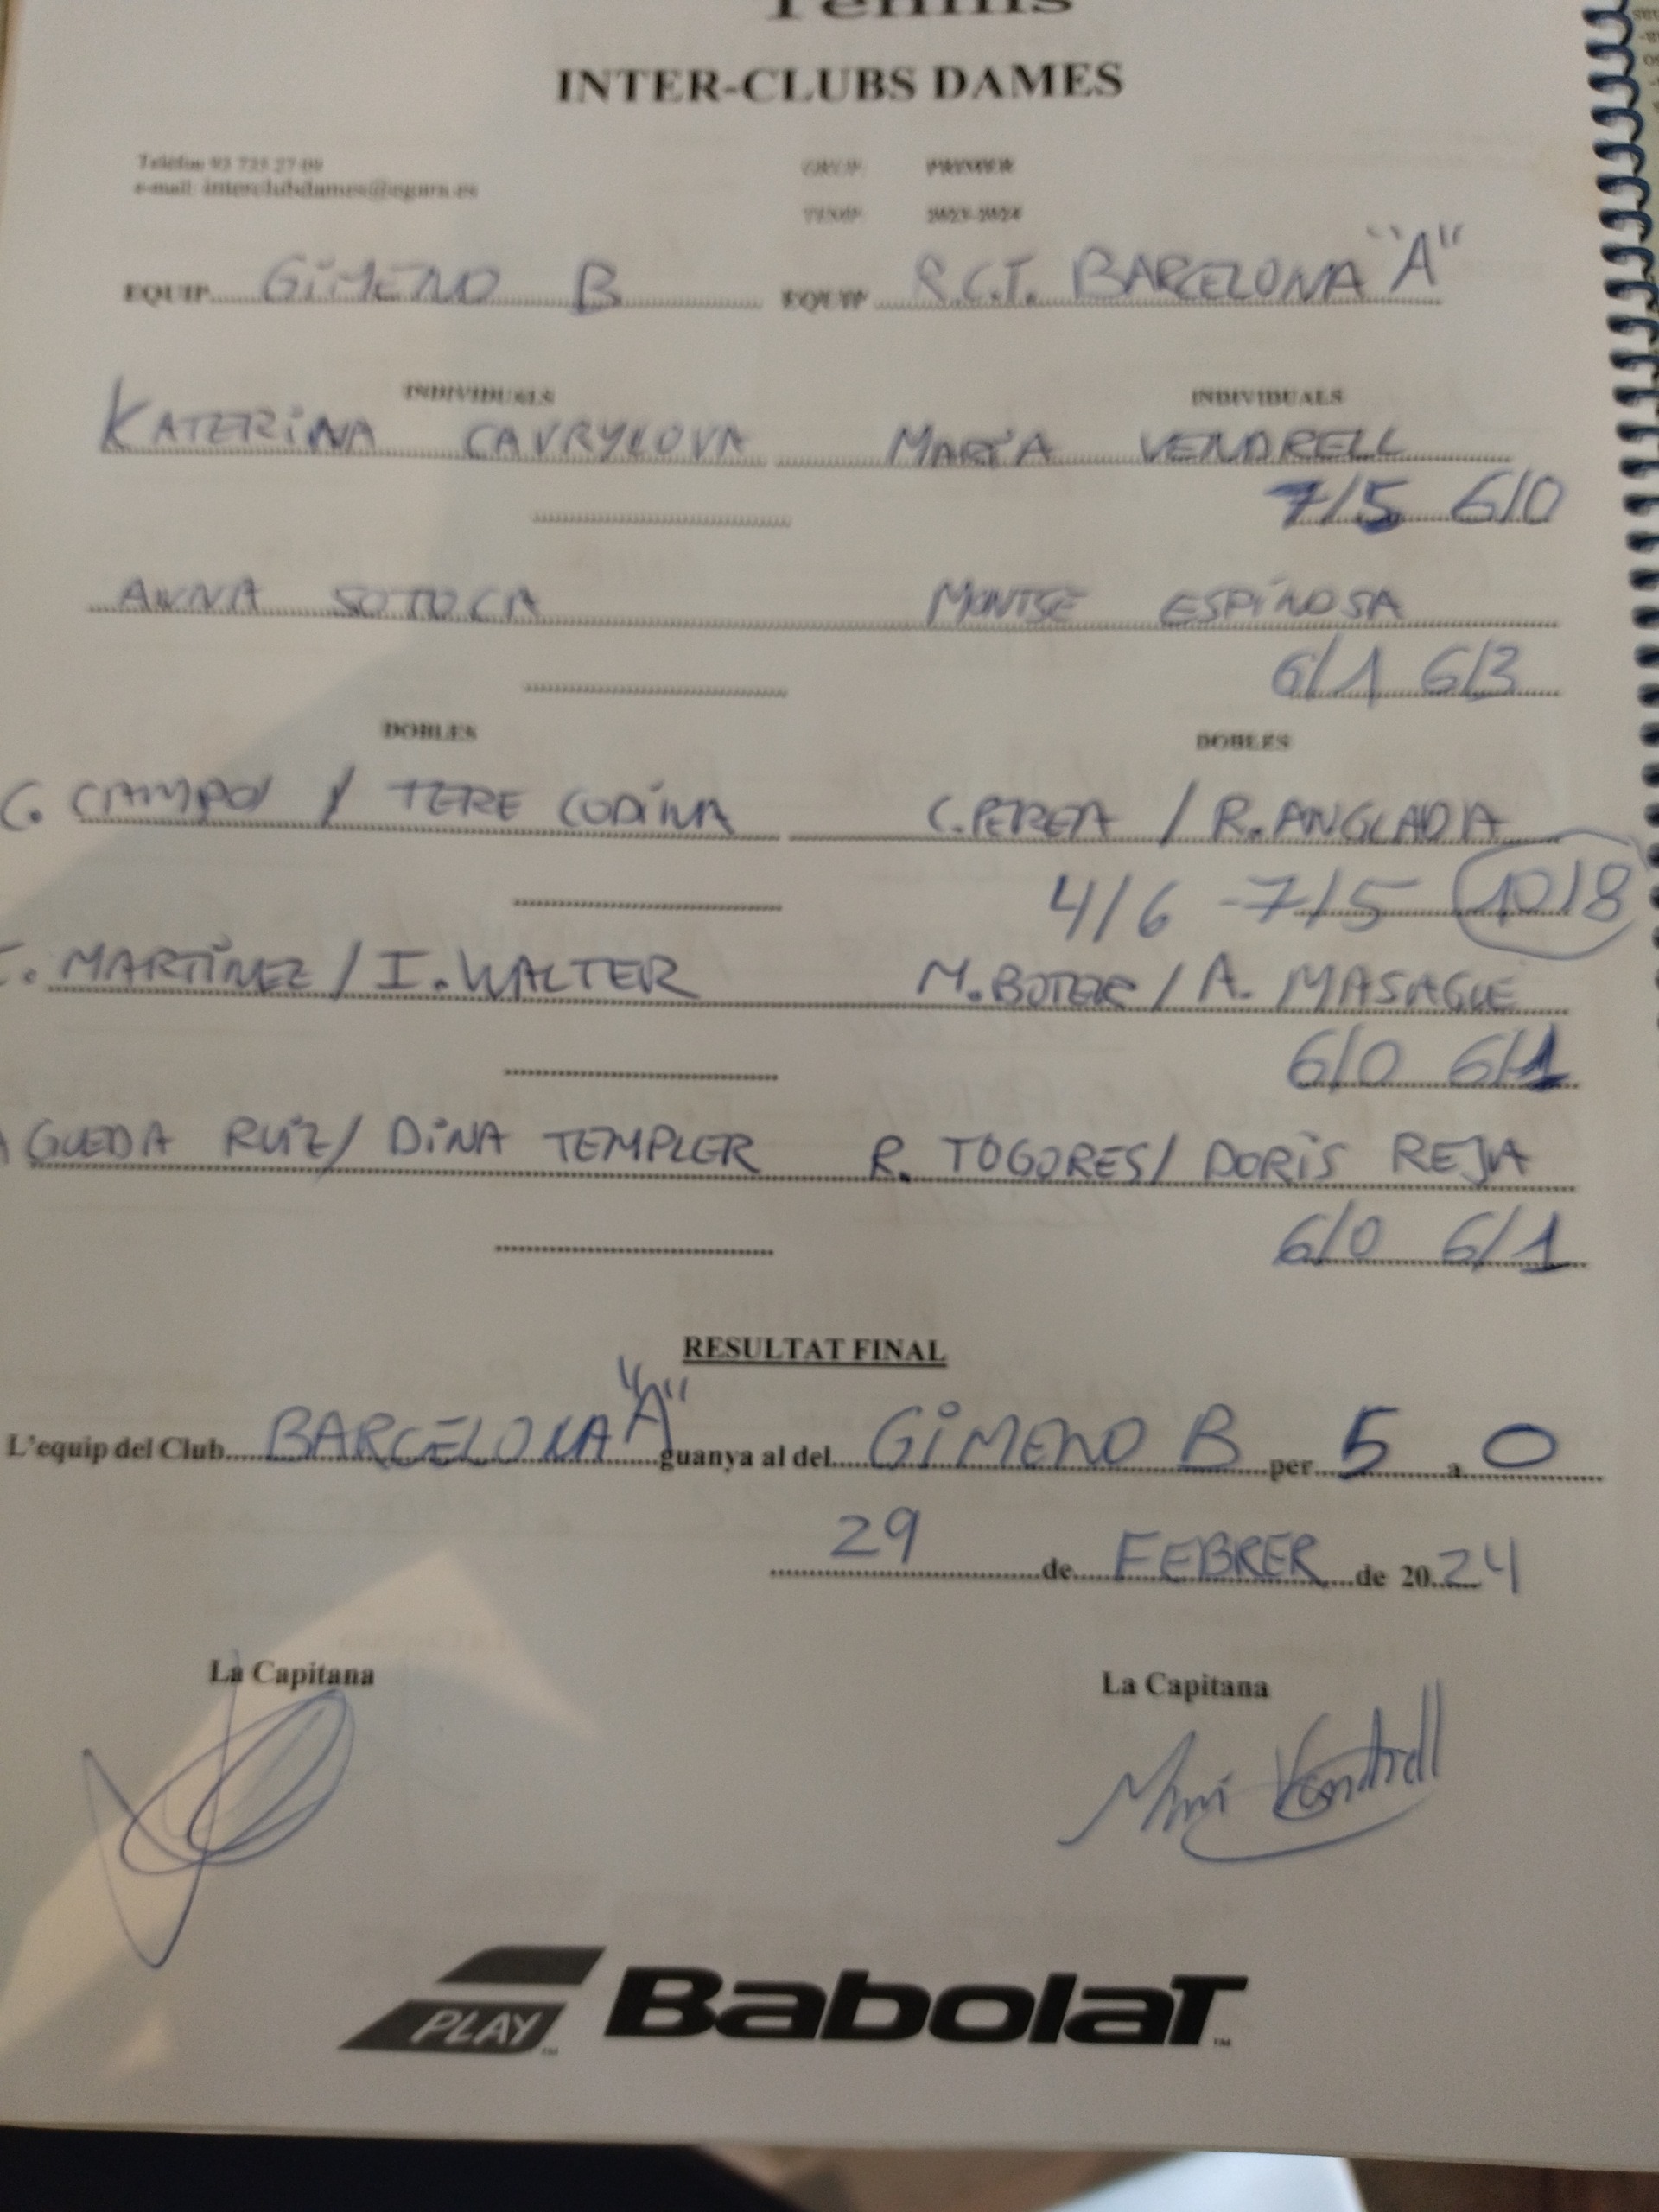 Tennis
INTER-CLUBS DAMES
Telèfon 93 735 27 09
e-mail: interclubdames@egara.es
GRUP: PRIMER
TEMP: 2023-2024
EQUIP GIMENO B EQUIP R.C.T. BARCELONA "A"
INDIVIDUALS INDIVIDUALS
KATERINA GAVRYLOVA MARÍA VENDRELL
7/5 6/0
ANNA SOTOCA MONTSE ESPINOSA
6/1 6/3
DOBLES DOBLES
C. CAMPOS / TERE CODINA C. PEREA / R. ANGLADA
4/6 - 7/5 10/8
MARTÍNEZ / I. WALTER M. BOTER / A. MASAGUE
6/0 6/1
AGUEDA RUIZ / DINA TEMPLER R. TOGORES / DORIS REJA
6/0 6/1
RESULTAT FINAL
L'equip del Club BARCELONA "A" guanya al del GIMENO B per 5 a 0
29 de FEBRER de 2024
La Capitana La Capitana
Vendrell
PLAY BabolaT